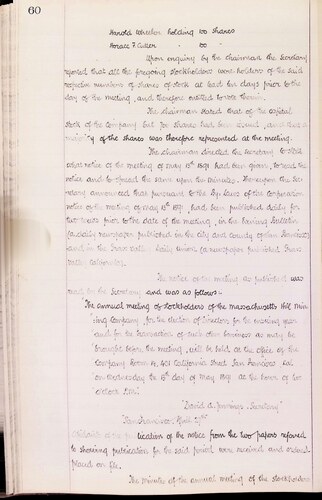 60
Harold Wheeler holding 100 shares
Horace F. Cutler " 100 "
Upon enquiry by the chairman the Secretary
reported that all the foregoing stockholders were holders of the said
respective numbers of shares of stock at least ten days prior to the
day of the meeting, and therefore entitled to vote therein.
The chairman stated that of the capital
stock of the Company but shares had been issued, and that a
majority of the shares was therefore represented at the meeting.
The chairman directed the Secretary to state
what notice of the meeting of May 13th 1891 had been given, to read the
notice and to spread the same upon the minutes. Thereupon the Sec
retary announced that pursuant to the By laws of the corporation
notice of the meeting of May 13th 1891, had been published daily for
two weeks prior to the date of the meeting, in the Evening Bulletin
(a daily newspaper published in the city and county of San Francisco)
and in the Grass Valley daily union (a newspaper published Grass
Valley California.
The notice of the meeting as published was
read by the Secretary and was as follows:-
"The annual meeting of stockholders of the Massachusetts Hill Min
ing Company, for the election of Directors for the ensuing year
and for the transaction of such other business as may be
brought before the meeting, will be held at the office of the
Company Room 4, 401 California Street San Francisco Cal
on Wednesday the 13th day of May 1891 at the hour of
o'clock P.M."
"David A. Jennings, Secretary"
"San Francisco,
Affidavits of the publication of the notice from the two papers referred
to showing publication for the said period were received and ordered
placed on file.
The minutes of the annual meeting of the stockholders